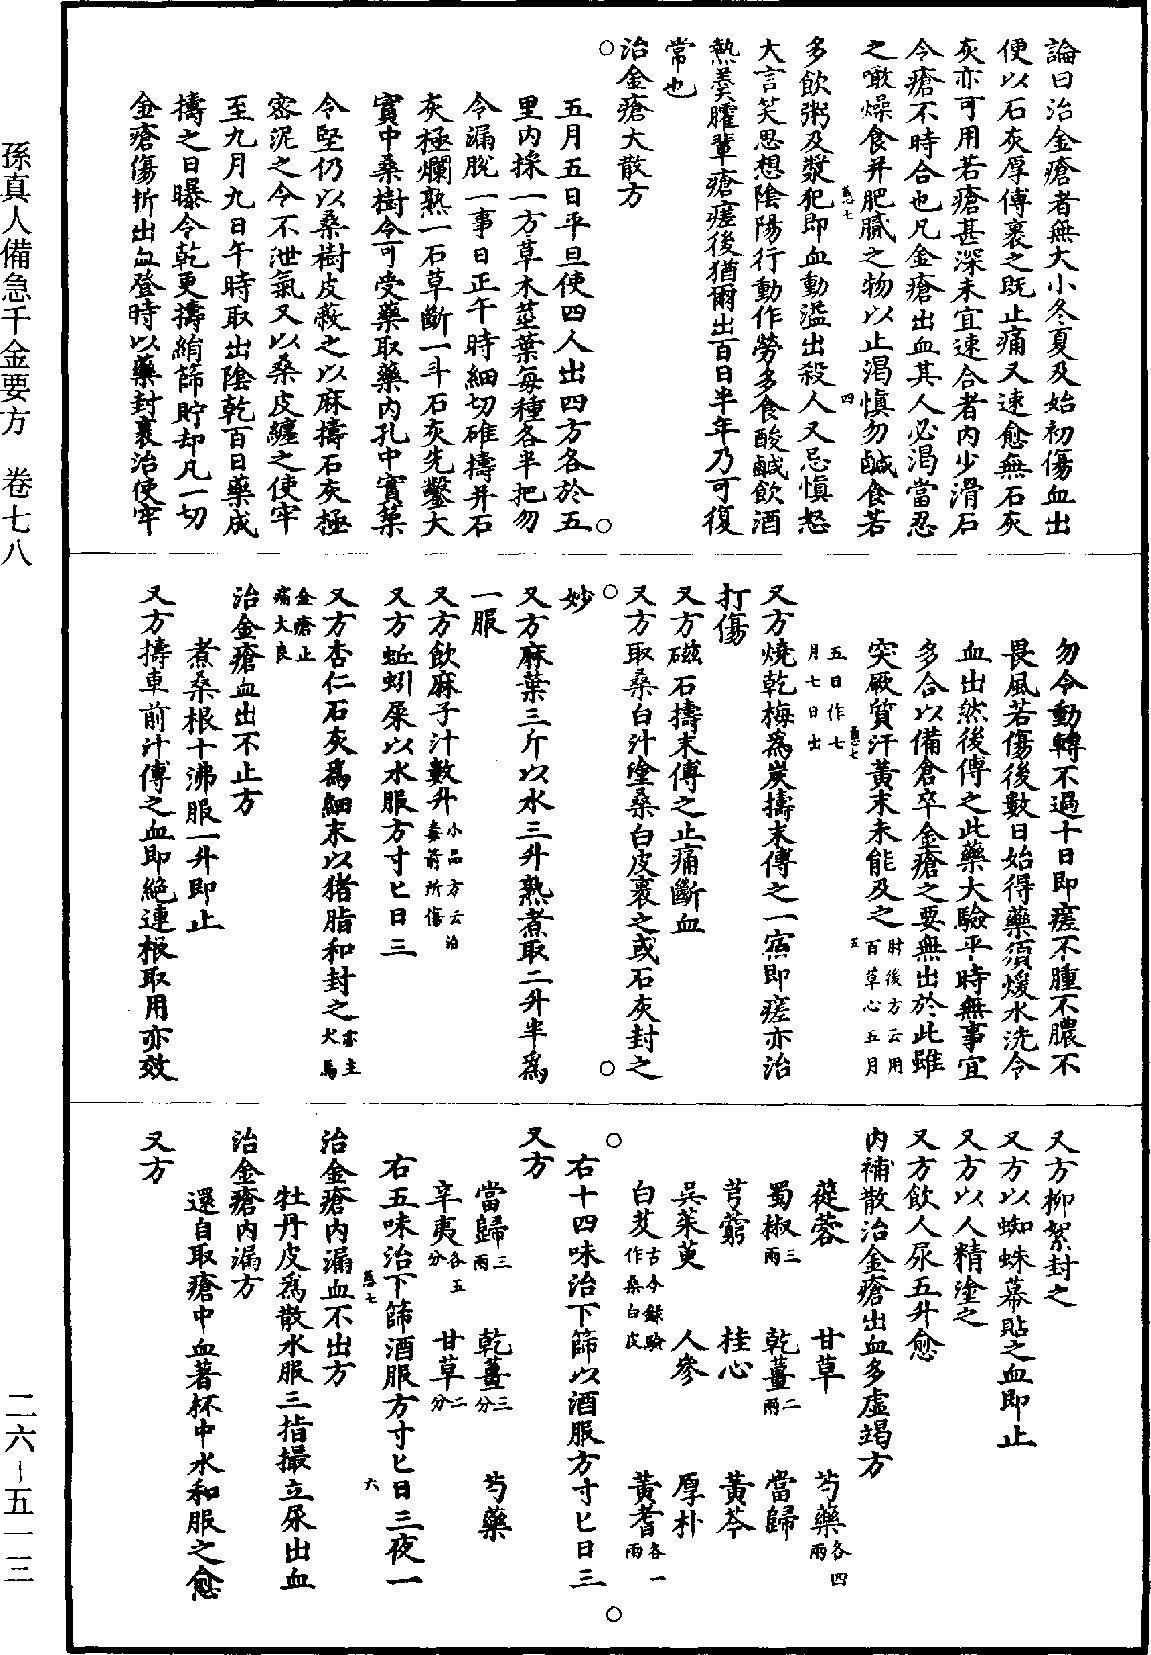 論曰治金瘡者無大小冬夏及始初傷血出
便以石灰厚傅裹之既止痛又速愈無石灰
灰亦可用若瘡甚深未宜速合者內少滑石
令瘡不時合也凡金瘡出血其人必渴當忍
之噉燥食并肥膩之物以止渴慎勿鹹食若
多飲粥及漿犯即血動溢出殺人又忌慎怒
大言笑思想陰陽行動作勞多食酸鹹飲酒
熱羹臛輩瘡瘥後猶爾出百日半年乃可復
常也
治金瘡大散方
五月五日平旦使四人出四方各於五
里內採一方草木莖葉每種各半把勿
令漏脫一事日正午時細切碓擣并石
灰極爛熟一石草斷一斗石灰先鑿大
實中桑樹令可受藥取藥內孔中實築
令堅仍以桑樹皮蔽之以麻擣石灰極
密泥之令不泄氣又以桑皮纏之使牢
至九月九日午時取出陰乾百日藥成
擣之日曝令乾更擣絹篩貯却凡一切
金瘡傷折出血登時以藥封裹治使牢
勿令動轉不過十日即瘥不腫不膿不
畏風若傷後數日始得藥須煖水洗令
血出然後傅之此藥大驗平時無事宜
多合以備倉卒金瘡之要無出於此雖
突厥質汗黃末未能及之肘後方云用百草心五月
五日作七月七日出
又方燒乾梅為炭擣末傅之一宿即瘥亦治
打傷
又方磁石擣末傅之止痛斷血
又方取桑白汁塗桑白皮裹之或石灰封之
妙
又方麻葉三斤以水三升熟煮取二升半為
一服
又方飲麻子汁數升小品方云治毒箭所傷
又方蚯蚓屎以水服方寸匕日三
又方杏仁石灰為細末以猪脂和封之亦主犬馬
金瘡止痛大良
治金瘡血出不止方
煮桑根十沸服一升即止
又方擣車前汁傅之血即絕連根取用亦效
又方柳絮封之
又方以蜘蛛幕貼之血即止
又方以人精塗之
又方飲人尿五升愈
內補散治金瘡出血多虛竭方
蓯蓉 甘草 芍藥各四兩
蜀椒三兩 乾薑二兩 當歸
芎藭 桂心 黃芩
吳茱萸 人參 厚朴
白芨古今錄驗作桑白皮 黃耆各一兩
右十四味治下篩以酒服方寸匕日三
又方
當歸三兩 乾薑三分 芍藥
辛夷各五分 甘草二分
右五味治下篩酒服方寸匕日三夜一
治金瘡內漏血不出方
牡丹皮為散水服三指撮立尿出血
治金瘡內漏方
還自取瘡中血著杯中水和服之愈
又方
孫真人備急千金要方 卷七八
二六-五一三